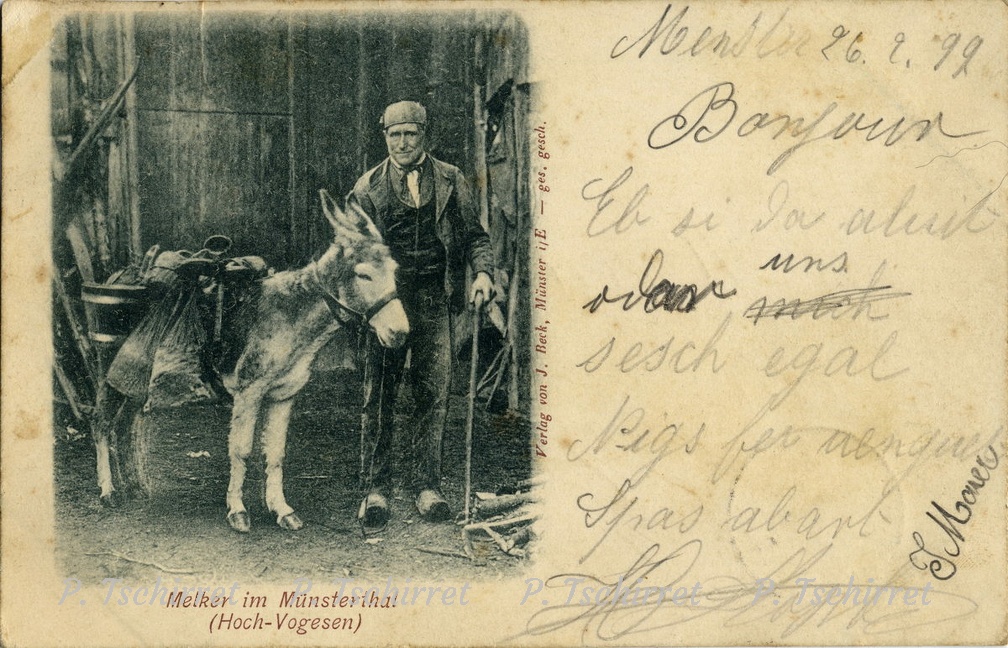 Menster 26. 2. 99
Bonjour
Eb si da
odar uns
sesch egal
Nigs fer
Spas abart
J Maurer
Verlag von J. Beck, Münster i/E — ges. gesch.
Melker im Münsterthal
(Hoch-Vogesen)
P. Tschirret P. Tschirret P. Tschirret P. Tschirret